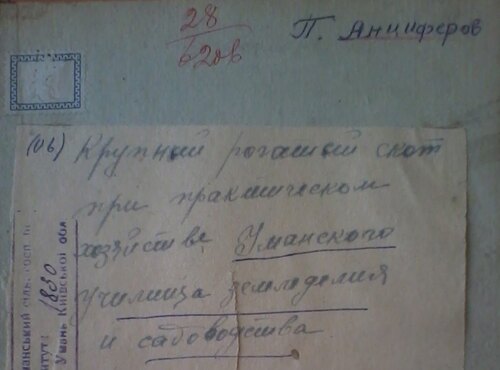 28
620в
П. Анциферов
(06) Крупный рогатый скот
при практическом
хозяйстве Уманского
училища земледелия
и садоводства
манський сіль.-госп. ін
титут
1830
Умань Київської обл